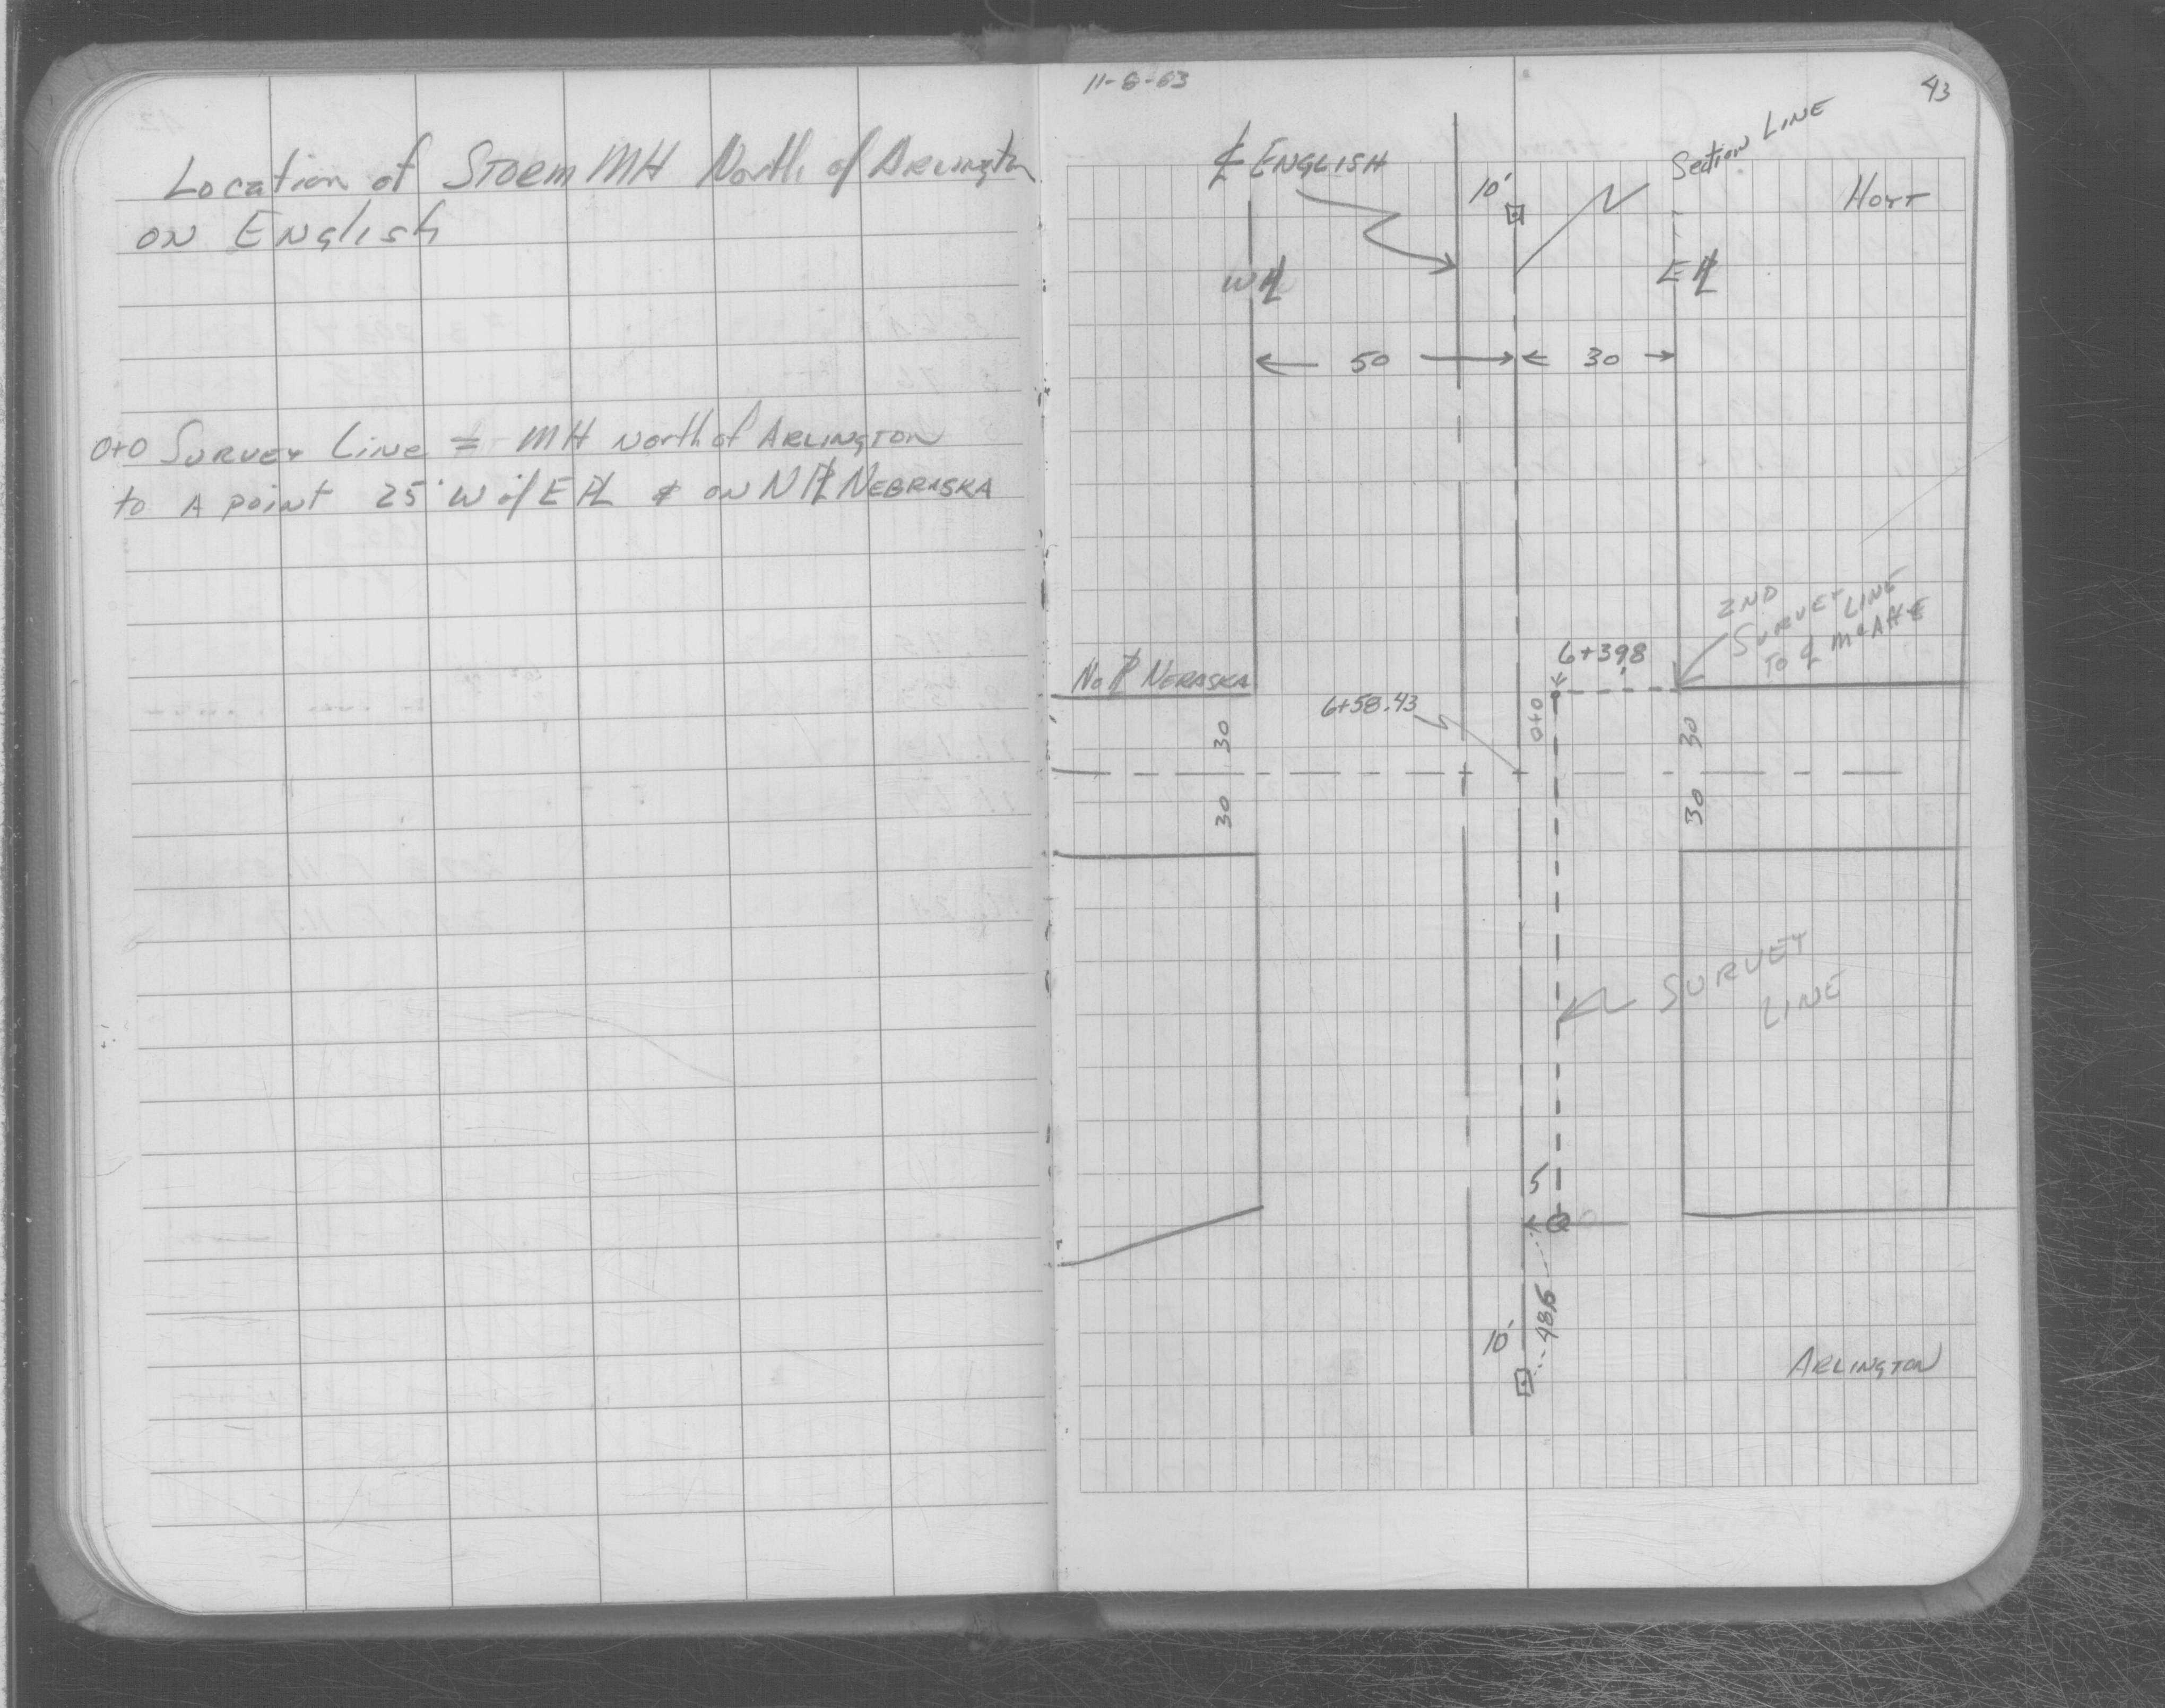 Location of Storm MH North of Arlington
on English
0+0 Survey Line = MH North of Arlington
to A point 25' W of E ⅊ & on N ⅊ Nebraska
11-6-63
43
℄ English
10'
Section Line
Hoyt
W ⅊
E ⅊
50
30
2nd
Survey Line
to ℄ McAfee
6+39.8
No ⅊ Neraska
6+58.43
0+0
30
30
30
30
Survey
Line
5
486
10'
Arlington